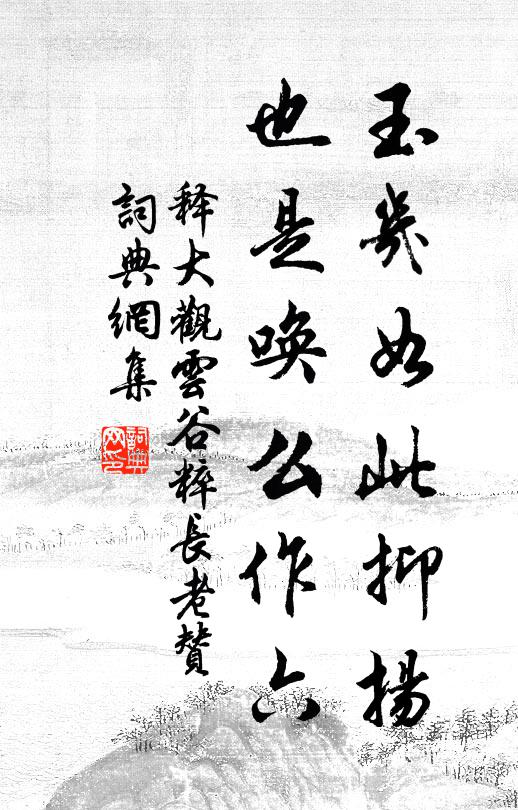 玉几如此抑揚
也是喚么作六
释大觀雲谷粹長老贊
詞典網集
詞典網印